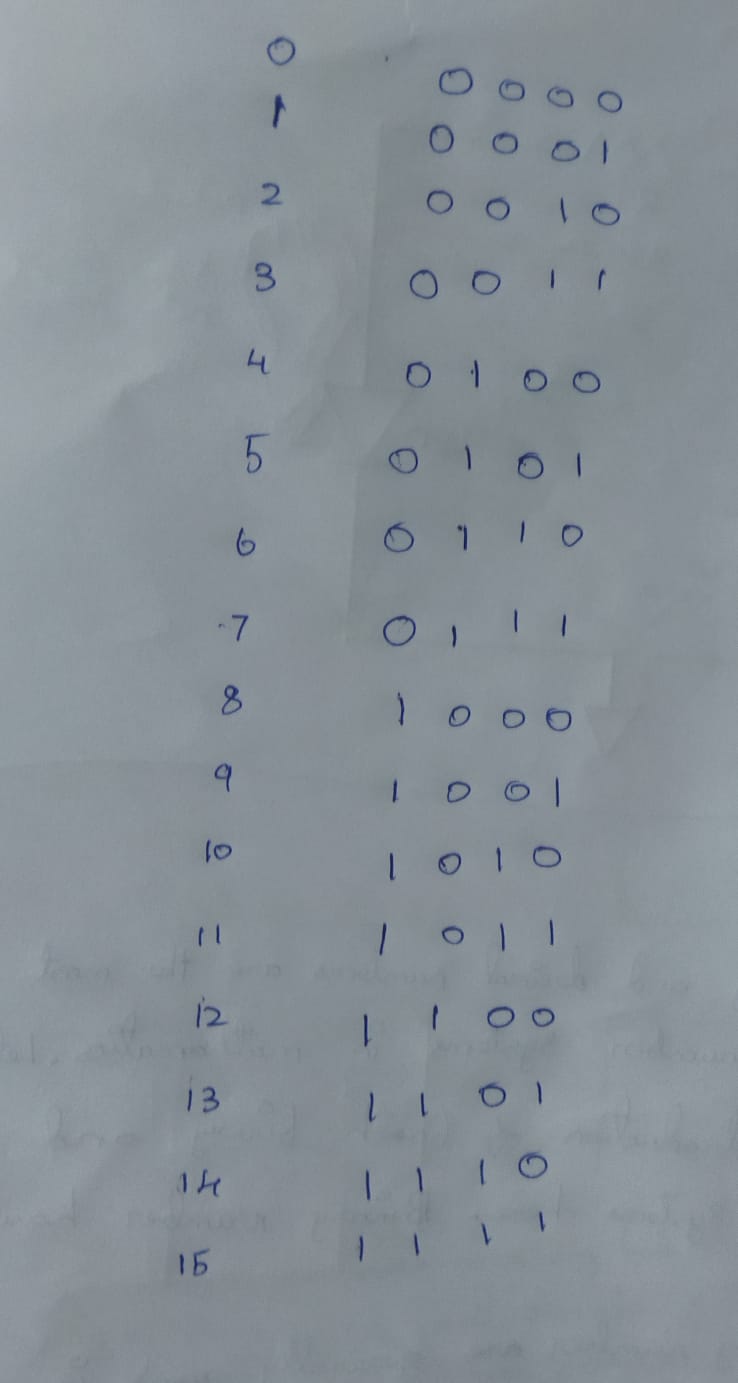 0 0 0 0 0
1 0 0 0 1
2 0 0 1 0
3 0 0 1 1
4 0 1 0 0
5 0 1 0 1
6 0 1 1 0
7 0 1 1 1
8 1 0 0 0
9 1 0 0 1
10 1 0 1 0
11 1 0 1 1
12 1 1 0 0
13 1 1 0 1
14 1 1 1 0
15 1 1 1 1